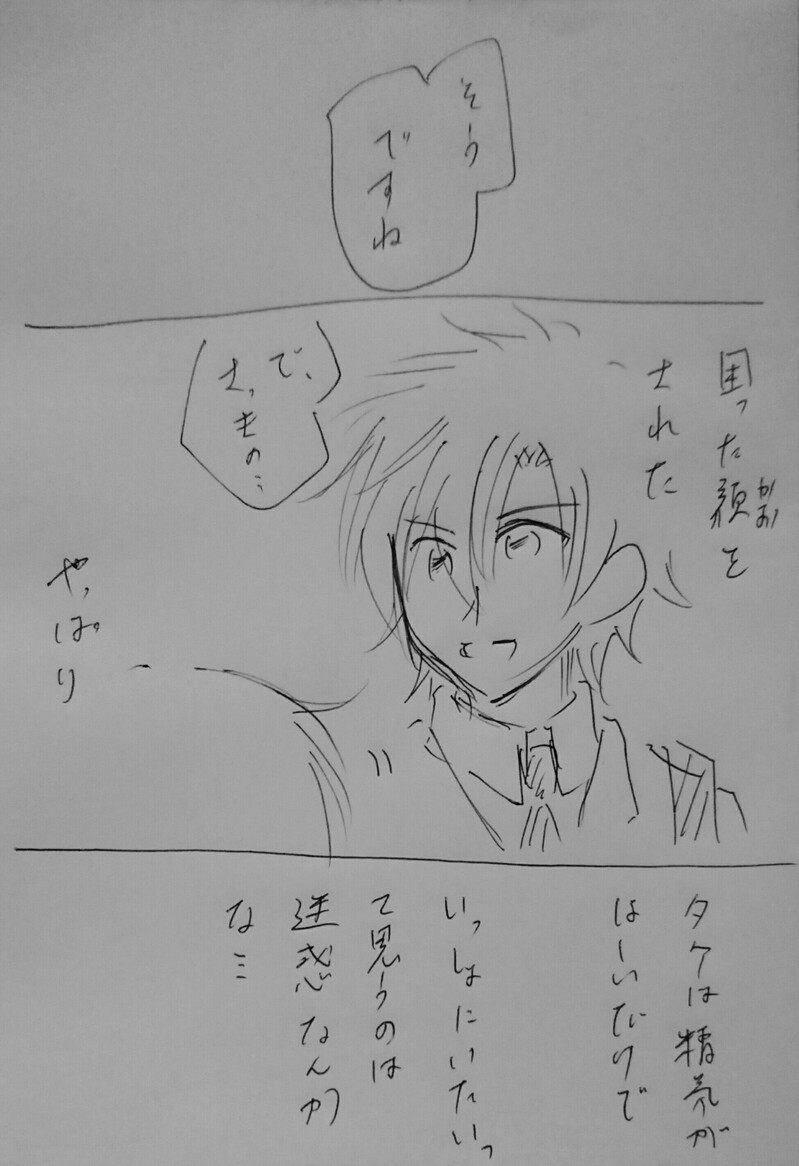 そう
ですね
困った顔を
かお
された
で、
さっきの…
やっぱり
タケは精気が
ほしいだけで
いっしょにいたいっ
て思うのは
迷惑なんか
な…